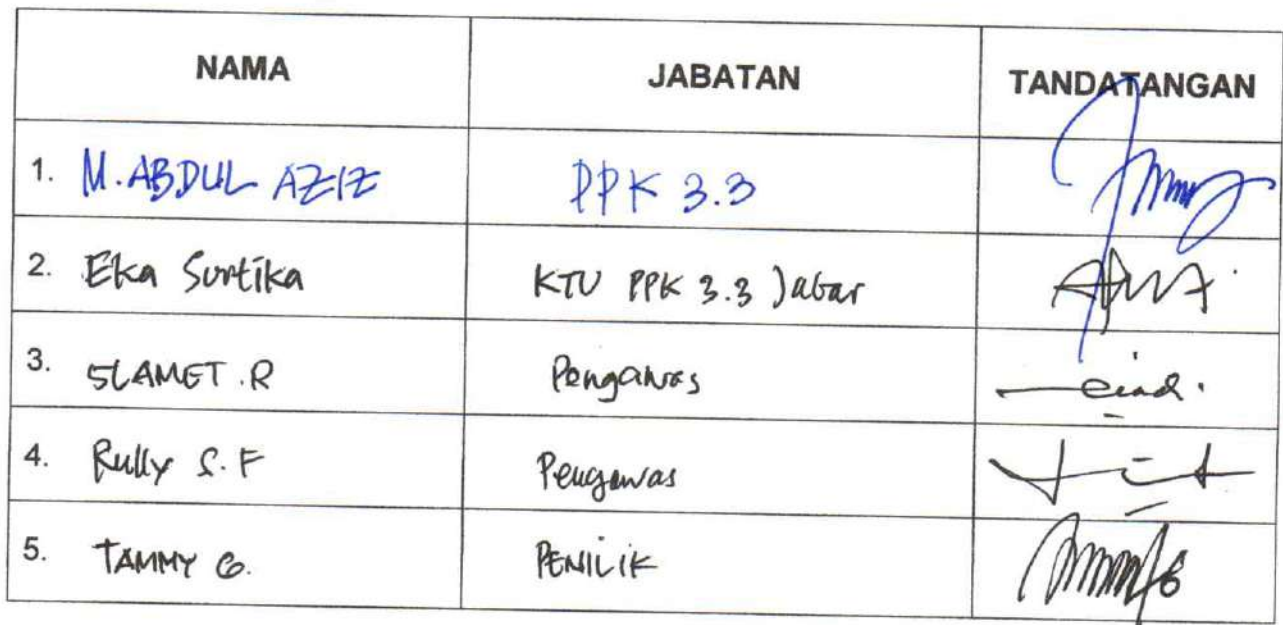 NAMA JABATAN TANDATANGAN
1. M. ABDUL AZIZ PPK 3.3
2. Eka Surtika KTU PPK 3.3 Jabar
3. SLAMET . R Pengawas
4. Rully S. F Pengawas
5. TAMMY G. PENILIK